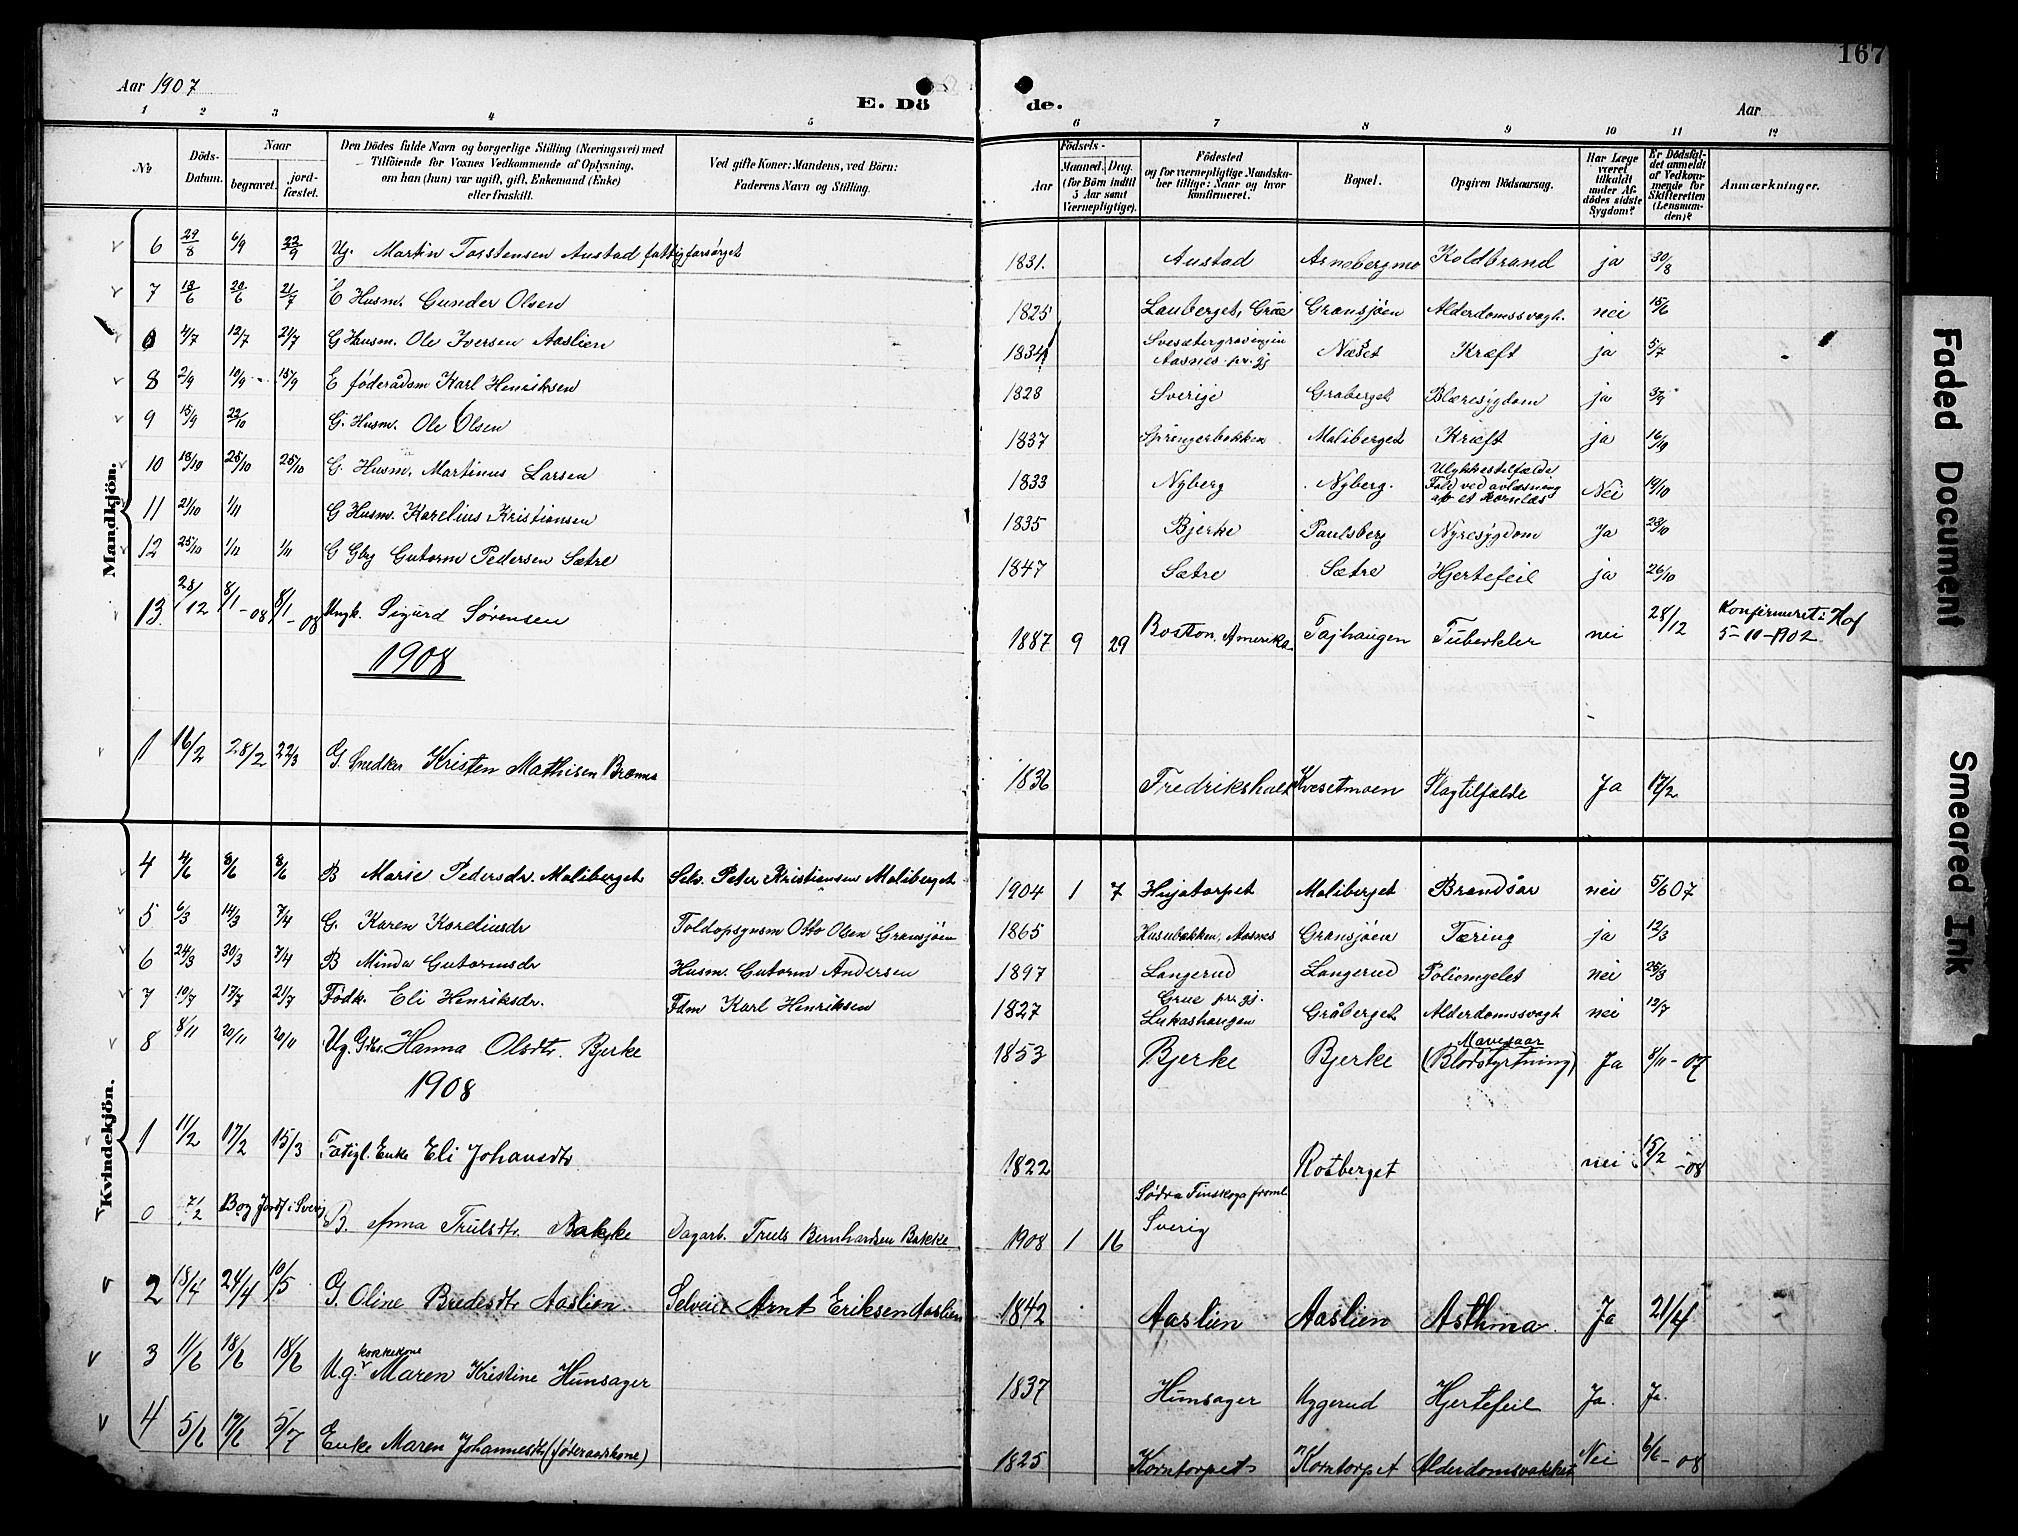 167
Aar 1907
E. Dö de.
Aar
1 2 3 4 5 6 7 8 9 10 11 12
No.
Döds-Datum.
Naar
begravet.
jord-fæstet.
Den Dödes fulde Navn og borgerlige Stilling (Næringsvei) med
Tilföiende for Voxnes Vedkommende af Oplysning,
om han (hun) var ugift, gift, Enkemand (Enke)
eller fraskilt.
Ved gifte Koner: Mandens, ved Börn:
Faderens Navn og Stilling.
Aar
Födsels-
Maaned. Dag.
(for Börn indtil
5 Aar samt
Værnepligtige).
Födested
og for værnepligtige Mandska-
ber tillige: Naar og hvor
konfirmeret.
Bopæl.
Opgiven Dödsaarsag.
Har Læge
været
tilkaldt
under Af-
dödes sidste
Sygdom?
Er Dödsfal-
det anmeldt
af Vedkom-
mende for
Skifteretten
(Lensman-
den)?
Anmærkninger.
Mandkjön.
6 29/8 6/9 22/9 Ug. Martin Torstensen Austad fattigforsørget 1831. Austad Arnebergmo Koldbrand ja 30/8
7 13/6 20/6 21/7 E Husm. Gunder Olsen 1825 Lauberget, Grue Gransjøen Alderdomssvagh. nei 15/6
0 4/7 12/7 21/7 G Husm. Ole Iversen Aaslien 1834 Aasnes pr. gj Næset Kræft ja 5/7
8 2/9 10/9 15/9 E føderådsm Karl Henriksen 1828 Sverige Graberget Blæresygdom ja 3/9
9 15/9 22/10 G. Husm. Ole Olsen 1837 Springerbakken Maliberget Kræft ja 16/9
10 13/10 25/10 25/10 G. Husm. Martinus Larsen 1833 Nyberg Nyberg. Ulykkestilfælde
Fald ved avlæsning
af et kornlæs Nei 14/10
11 21/10 1/11 G Husm. Karelius Kristiansen 1835 Bjerke Paulsberg Nyresygdom Ja 23/10
12 25/10 1/11 1/11 G Gbr Gutorm Pedersen Sætre 1847 Sætre Sætre Hjertefeil ja 26/10
13. 28/12 8/1-08 8/1-08 Ungk. Sigurd Sørensen 1887 9 29 Boston, Amerika Tajhaugen Tuberkler nei 28/12 Konfirmeret i Hof
5-10-1902
1908
1 16/2 28/2 22/3 G. Snedker Kristen Mathisen Brænna 1836 Fredrikshald Kvesetmoen Slagtilfælde Ja 17/2
Kvindekjön.
4 4/6 8/6 8/6 B Marie Pedersdr. Maliberget Selv. Peter Kristiansen Maliberget 1904 1 7 Husjatorpet Maliberget Brandsår nei 5/6 07
5 6/3 14/3 7/4 G. Karen Kareliusdr Toldopsynsm Otto Olsen Gransjøen 1865 Husubakken, Aasnes Gransjøen Tæring ja 12/3
6 24/3 30/3 7/4 B Minda Gutormsdr Husm. Gutorm Andersen 1897 Langerud Langerud Poliomyelet nei 25/3
7 10/7 17/7 21/7 Födk. Eli Henriksdr. Fdm Karl Henriksen 1827 Grue pr. gj.
Lukashaugen Gråberget Alderdomssvagh nei 12/7
8 8/11 20/11 20/11 Ug. Gdr. Hanna Olsdtr. Bjerke 1853 Bjerke Bjerke Mavesaar
(Blodstyrtning) Ja 8/11-07
1908
1 11/2 17/2 15/3 Fatigl. Enke Eli Johansdtr 1822 Rotberget nei 15/2-08
0 7/2 Beg. Jordf i Sverig B. Anna Trulsdtr. Bakke Dagarb. Truls Bernhardsen Bakke 1908 1 16 Södra Finskoga
Sverig
2 18/4 24/4 10/5 G. Oline Bredesdtr Aaslien Selveier Arnt Eriksen Aaslien 1842 Aaslien Aaslien Asthma. Ja 21/4
3 11/6 18/6 18/6 Ug. kokkekone Maren Kristine Hunsager 1837 Hunsager Uggerud Hjertefeil Ja. Ja.
4 5/6 12/6 5/7 Enke Maren Johannesdtr (föderaadskone) 1825 Korntorpet Korntorpet Alderdomssvakhet Nei 6/6-08
Faded Document
Smeared Ink